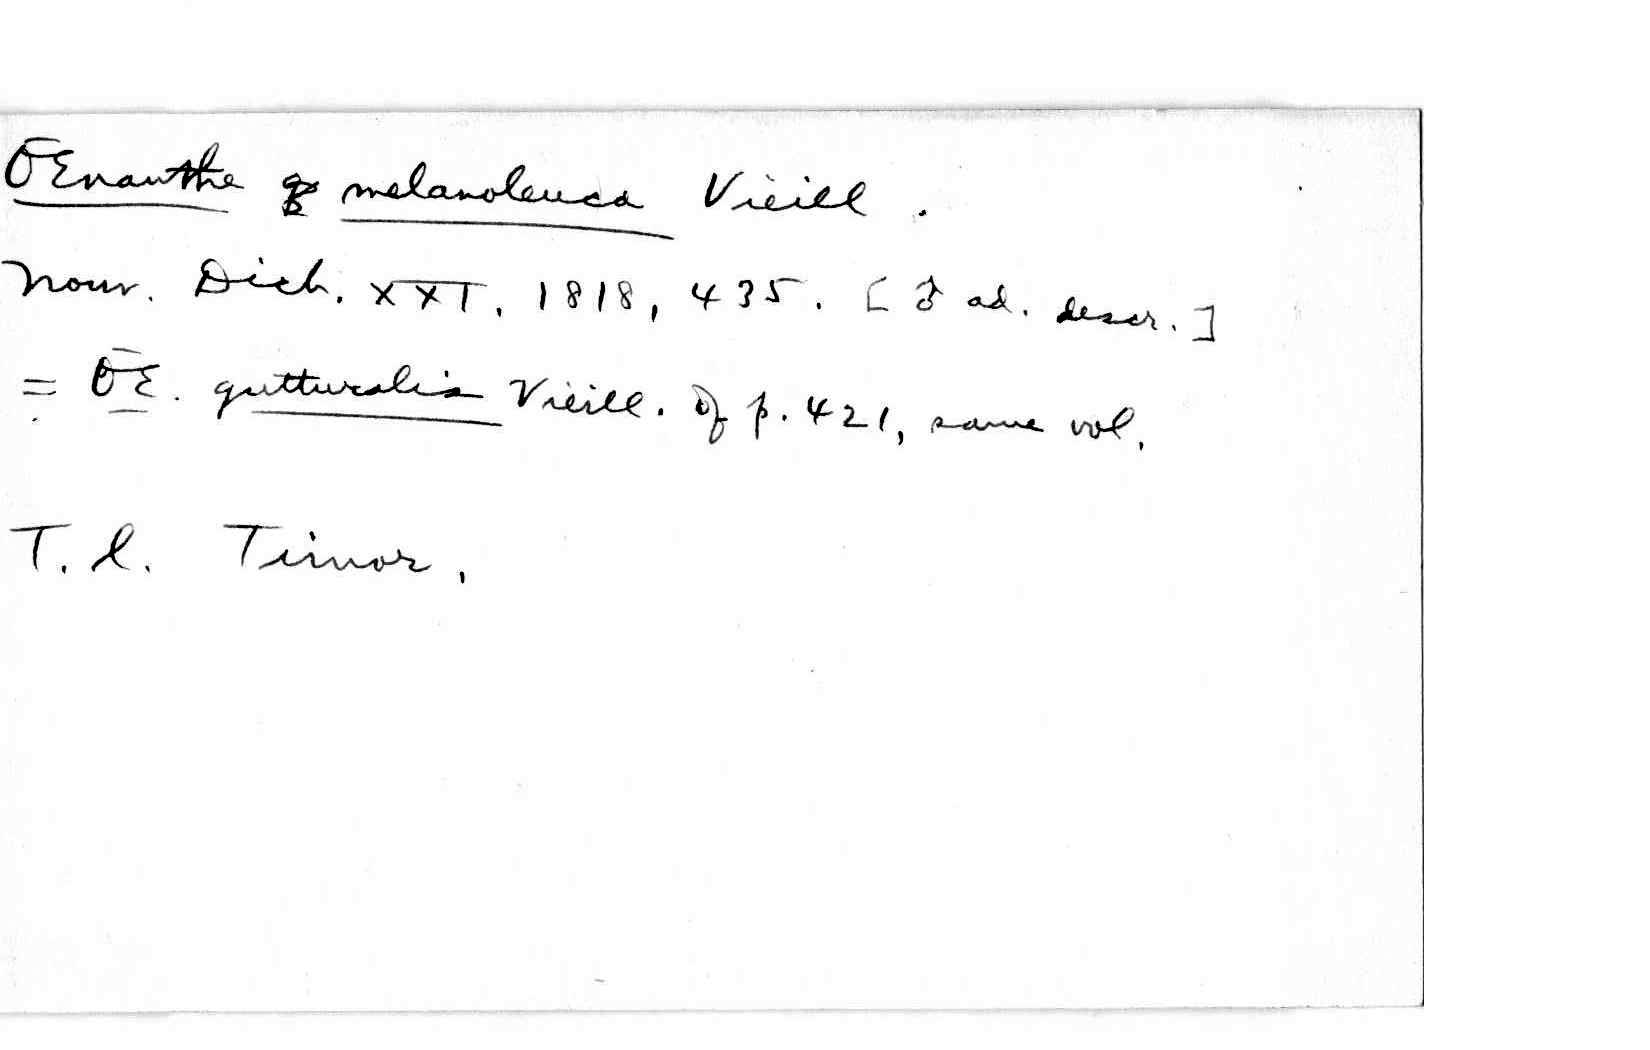 OEnanthe melanoleuca Vieill.
Nouv. Dict. XXI, 1818, 435. [♂ ad. descr.]
= OE. gutturalis Vieill. Of p. 421, same vol.
T. l. Timor.